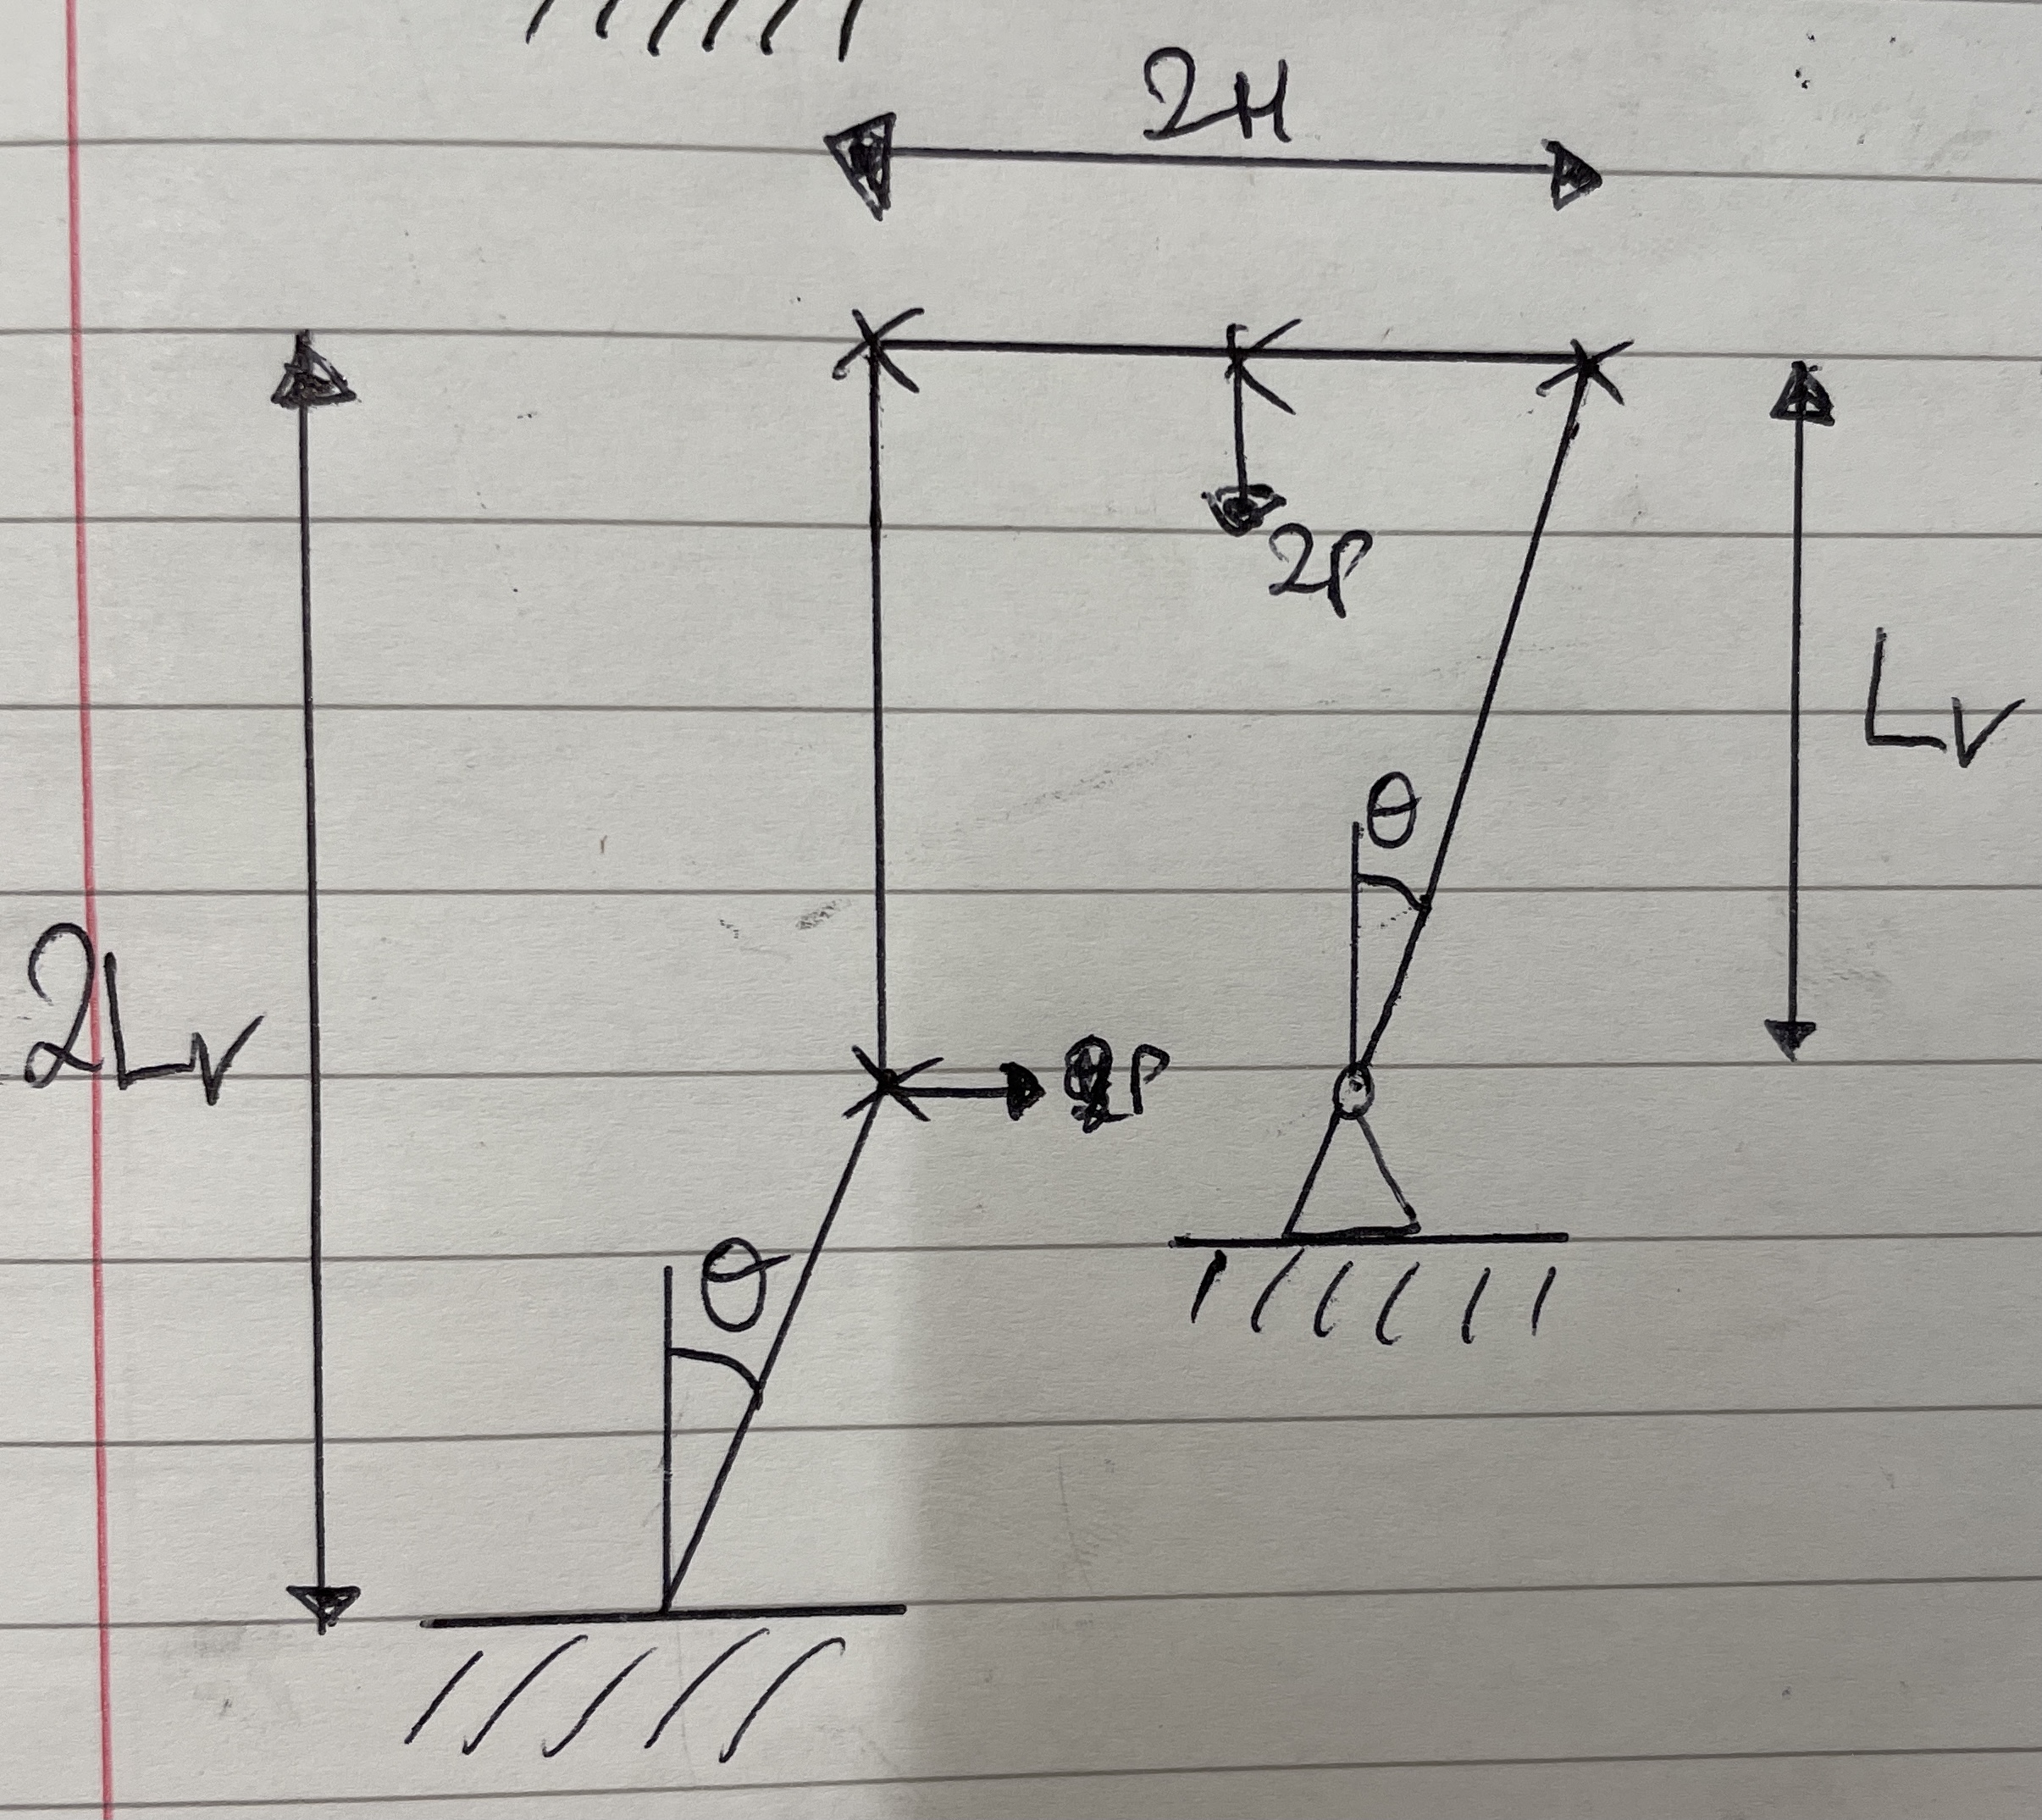 2H
2P
LV
θ
2LV
P
θ